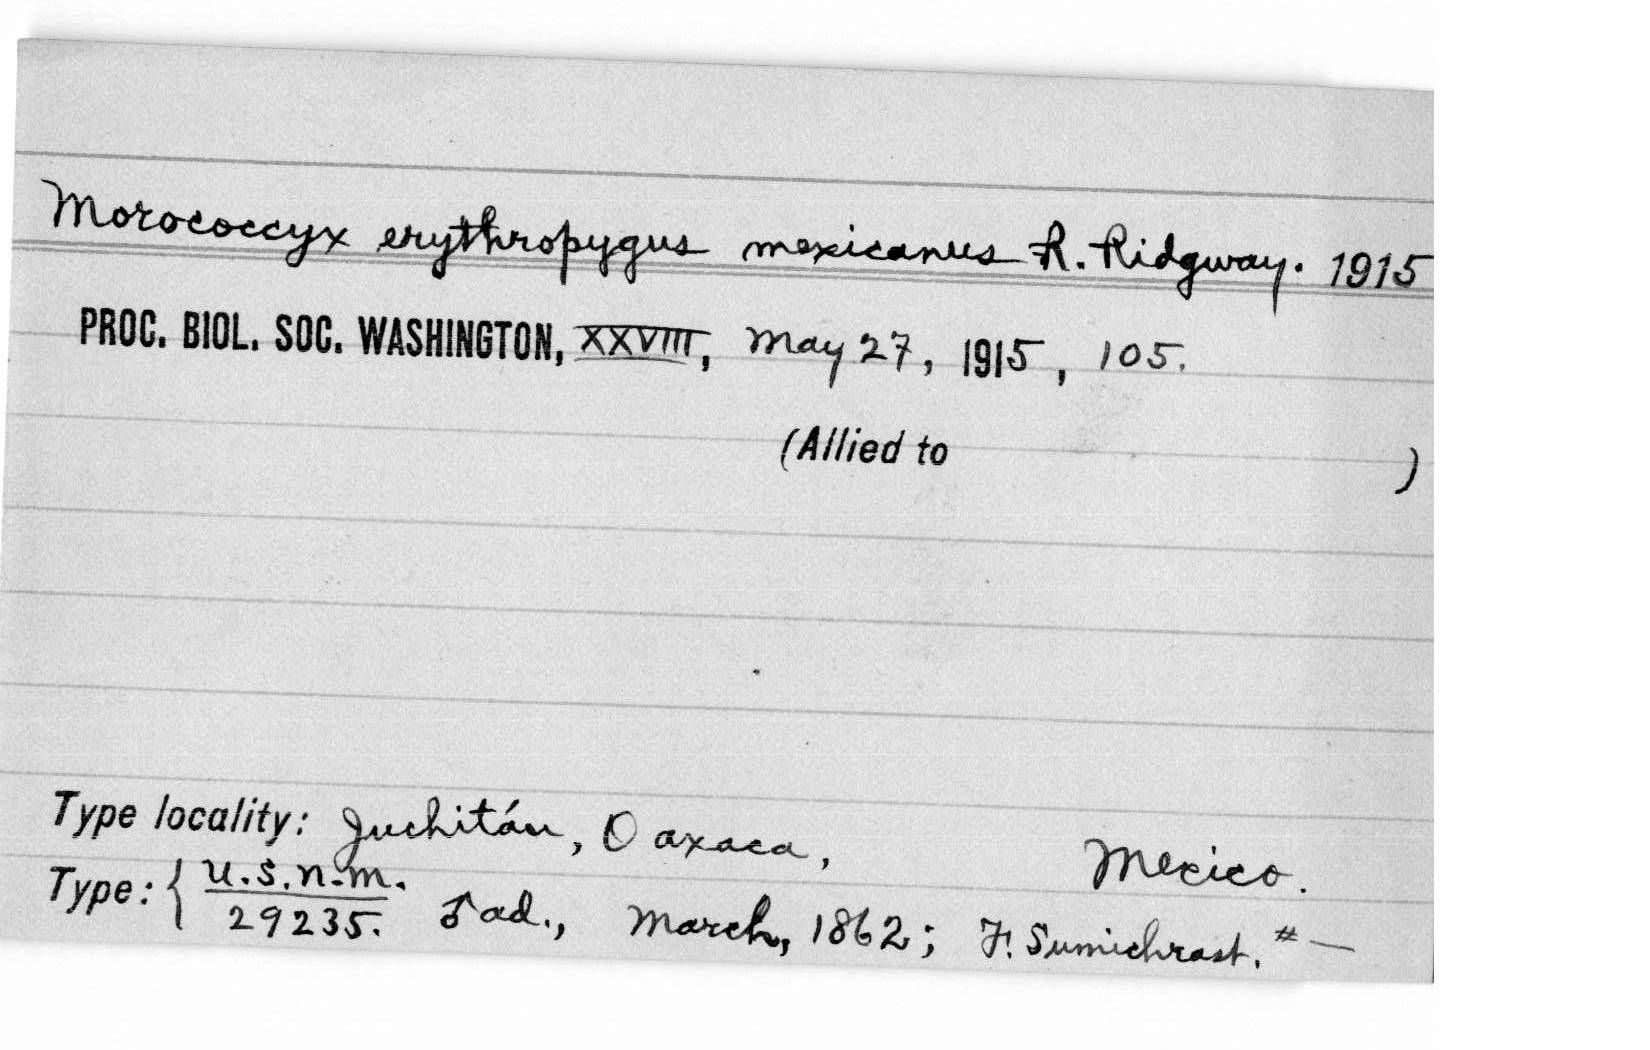 Morococcyx erythropygus mexicanus R. Ridgway. 1915
PROC. BIOL. SOC. WASHINGTON, XXVIII, May 27, 1915, 105.
(Allied to )
Type locality: Juchitán, Oaxaca, Mexico.
Type: { U.S.N.M.
29235. ♂ ad., March, 1862; F. Sumichrast. # —